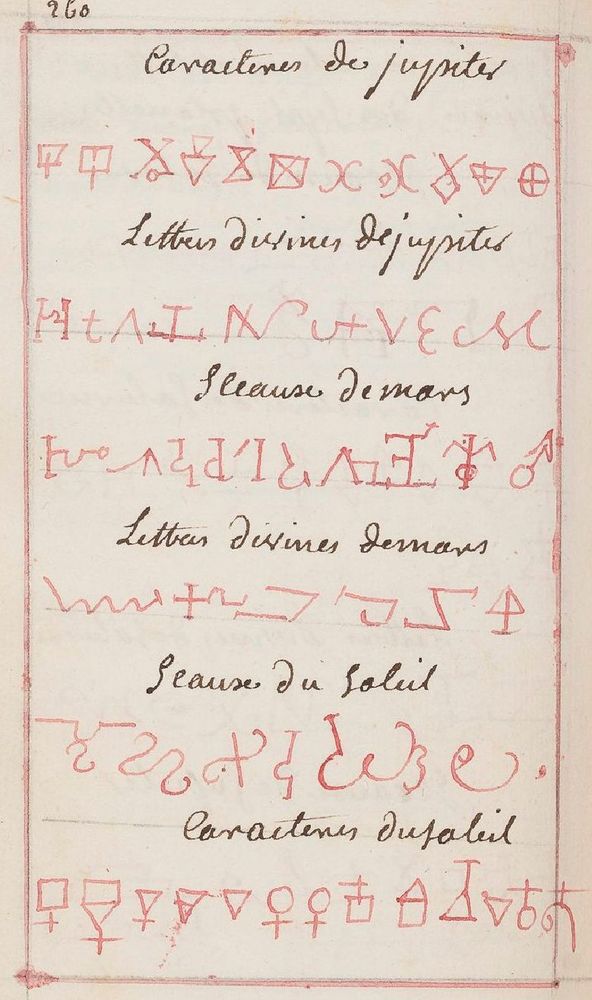 260
Caracteres de jupiter
Lettres divines de jupiter
Sceause de mars
Lettres divines de mars
Seause du soleil
Caracteres du soleil